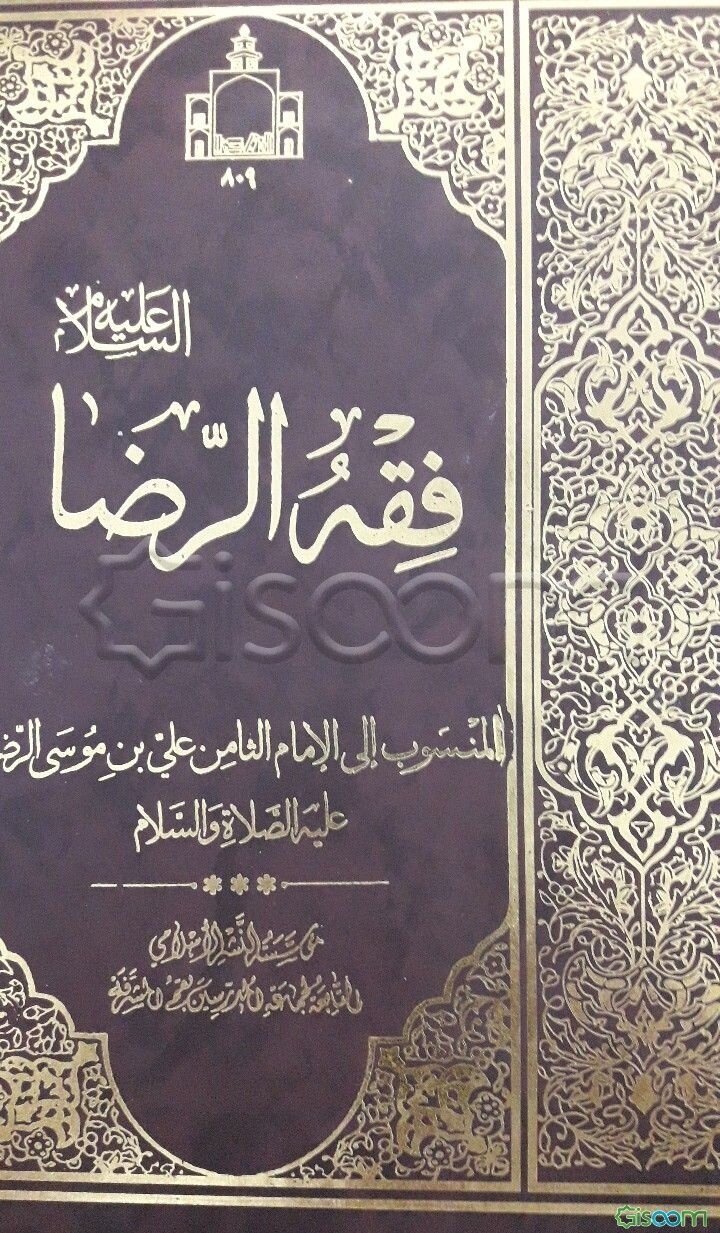 ٨٠٩
عَلَيْهِ السَّلام
فِقْهُ الرِّضَا
المَنْسُوبِ إلى الإمام الثامِن عَلِيّ بن مُوسَى الرّضـ
عليه الصَّلاةِ وَالسَّلام
مؤسسة النشر الإسلامي
التابعة لجماعة المدرسين بقم المشرفة
Gisoom
Gisoom